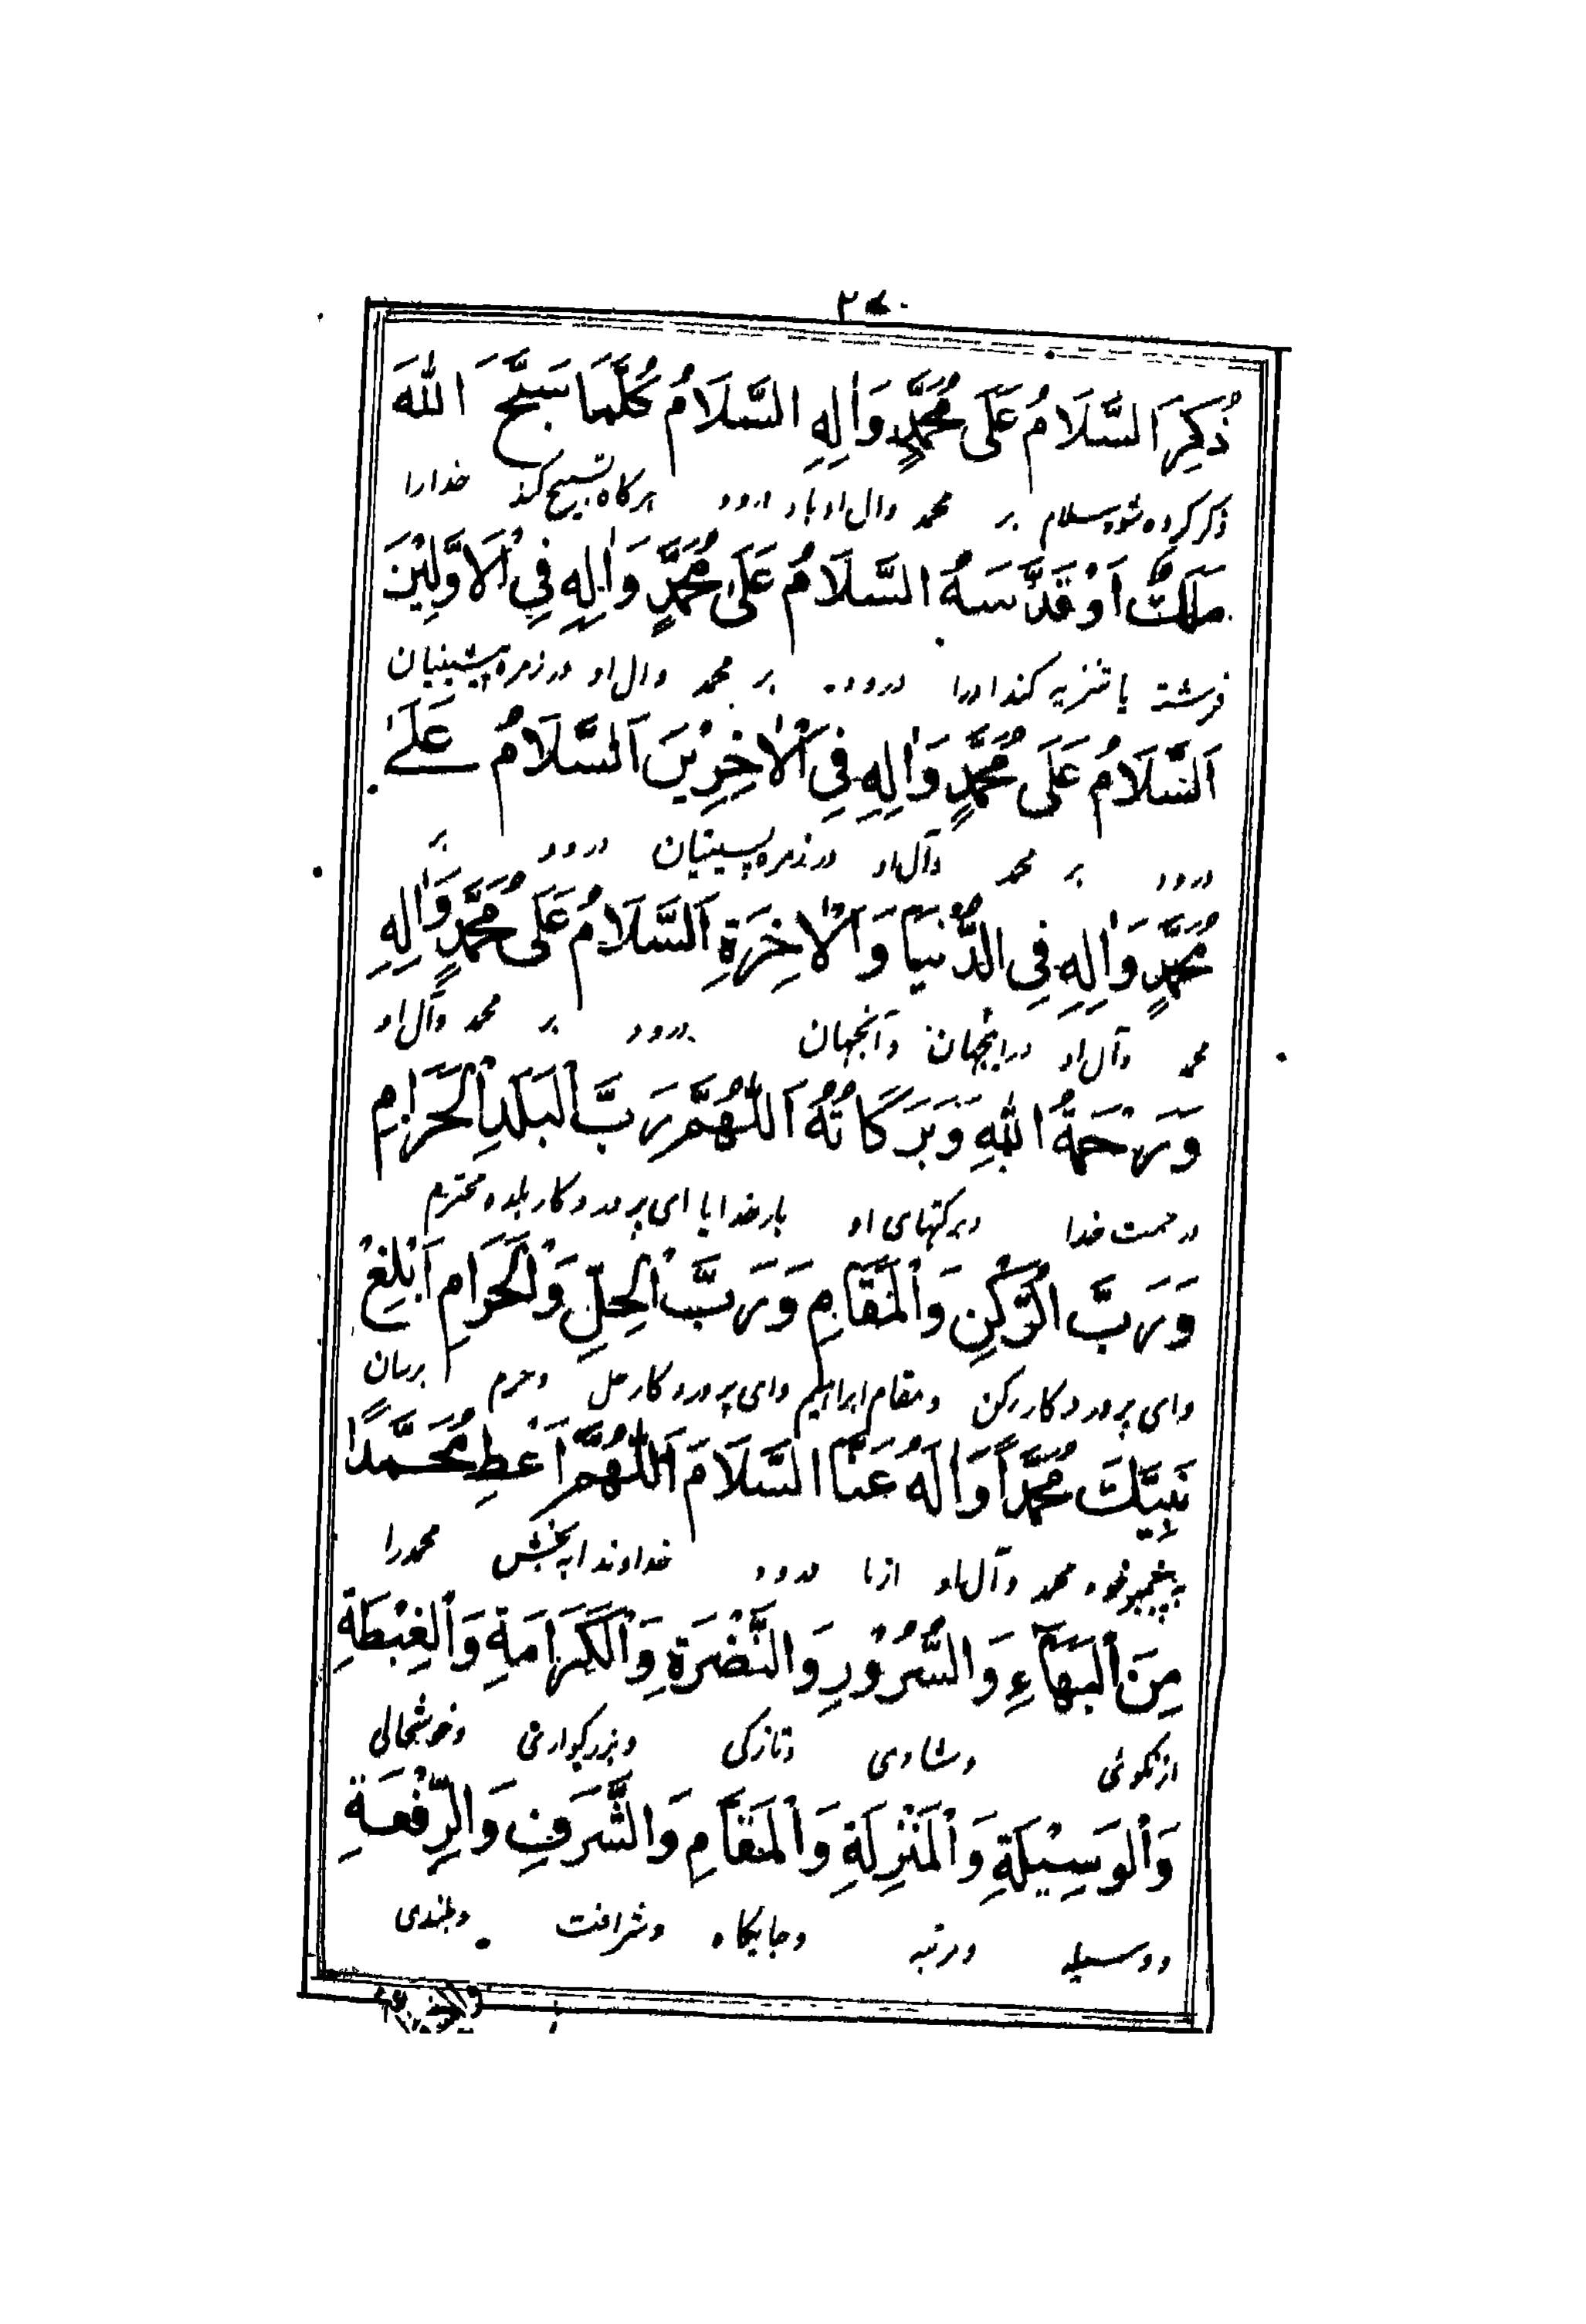 ذُكِرَ اَلسَّلَامُ عَلَى مُحَمَّدٍ وَاٰلِهِ السَّلَامُ كُلَّمَا سَبَّحَ اللّٰهَ
ذکر کرده شود سلام بر محمد وال او باد درود هرگاه تسبیح کند خدارا
مَلَكٌ اَوْ قَدَّسَهُ السَّلَامُ عَلَىٰ مُحَمَّدٍ وَاٰلِهِ فِي الْاَوَّلِيْنَ
فرشته یا تنزیه کند اورا درود بر محمد وال او در زمره پیشینیان
اَلسَّلَامُ عَلَى مُحَمَّدٍ وَاٰلِهِ فِي الْاٰخِرِيْنَ اَلسَّلَامُ عَلَىٰ
درود بر محمد وآل او در زمره پسینیان درود بر
مُحَمَّدٍ وَاٰلِهِ فِي الدُّنْيَا وَالْاٰخِرَةِ اَلسَّلَامُ عَلَى مُحَمَّدٍ وَاٰلِهِ
محمد وآل او در اینجهان وآنجهان درود بر محمد وآل او
وَرَحْمَةُ اللّٰهِ وَبَرَكَاتُهُ اَللّٰهُمَّ رَبَّ الْبَلَدِ الْحَرَامِ
ورحمت خدا وبرکتهای او بار خدایا ای پروردکار بلده محترم
وَرَبَّ الرُّكْنِ وَالْمَقَامِ وَرَبَّ الْحِلِّ وَالْحَرَامِ اَبْلِغْ
وای پروردکار رکن ومقام ابراهیم وای پروردکار حل وحرم برسان
نَبِيَّكَ مُحَمَّدًا وَاٰلَهُ عَنَّا السَّلَامَ اَللّٰهُمَّ اَعْطِ مُحَمَّدًا
به پیغمبر خود محمد وآل او از ما درود خداوندا به بخش محمد را
مِنَ الْبَهَآءِ وَالسُّرُوْرِ وَالنَّضْرَةِ وَالْكَرَامَةِ وَالْغِبْطَةِ
از نکوئی وشادی وتازکی وبزرکواری وخوشحالی
وَالْوَسِيْلَةِ وَالْمَنْزِلَةِ وَالْمَقَامِ وَالشَّرَفِ وَالرِّفْعَةِ
ووسیله ومرتبه وجایکاه وشرافت وبلندی